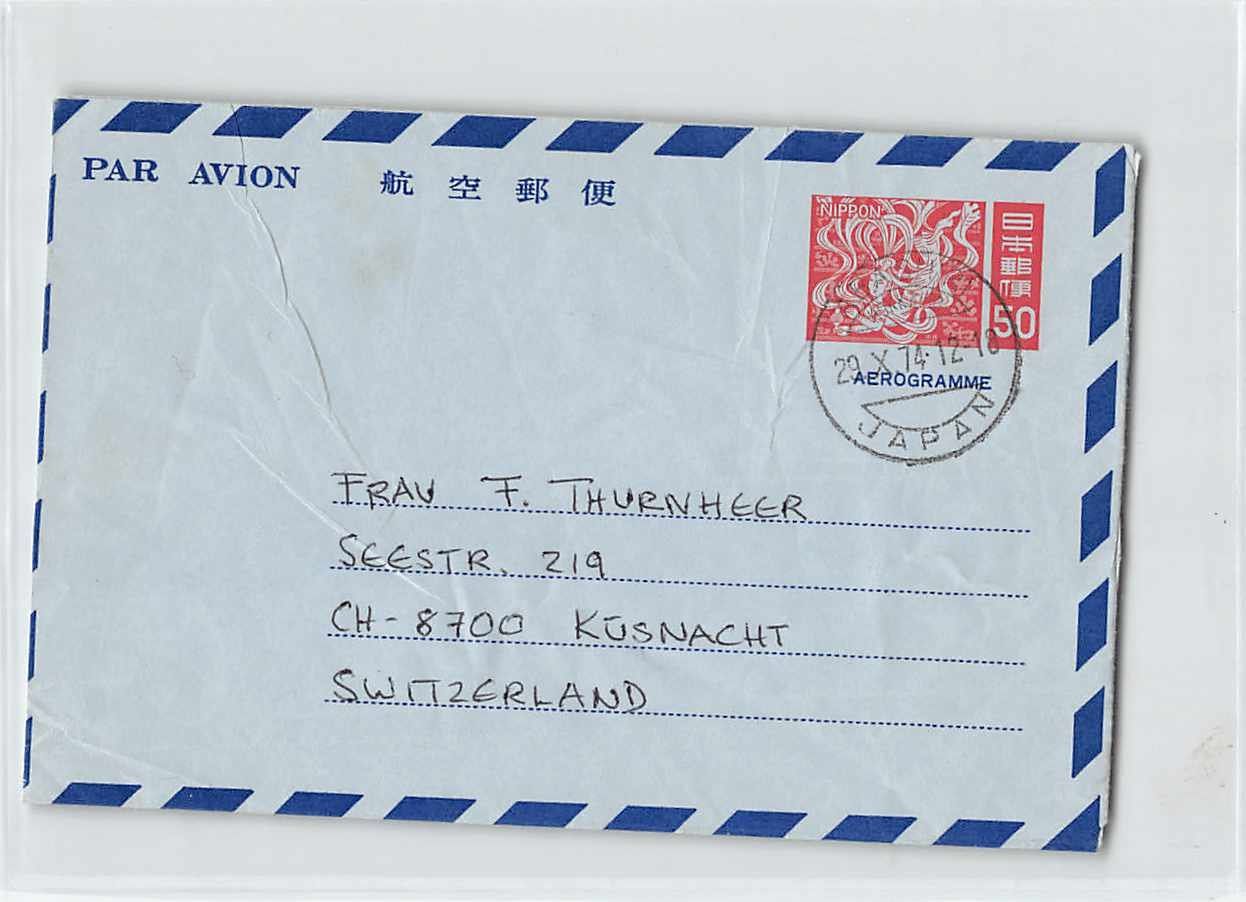 PAR AVION 航空郵便
NIPPON
日本郵便
50
29.X.74.12-18
AEROGRAMME
JAPAN
FRAU F. THURNHEER
SEESTR. 219
CH-8700 KÜSNACHT
SWITZERLAND